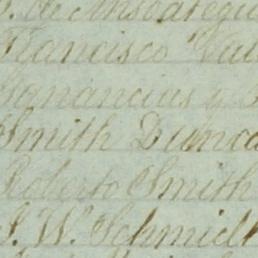 de Ansoategui
Francisco Val
Ganancias y
Smith Dunca
Roberto Smith
J. W. Schmidt